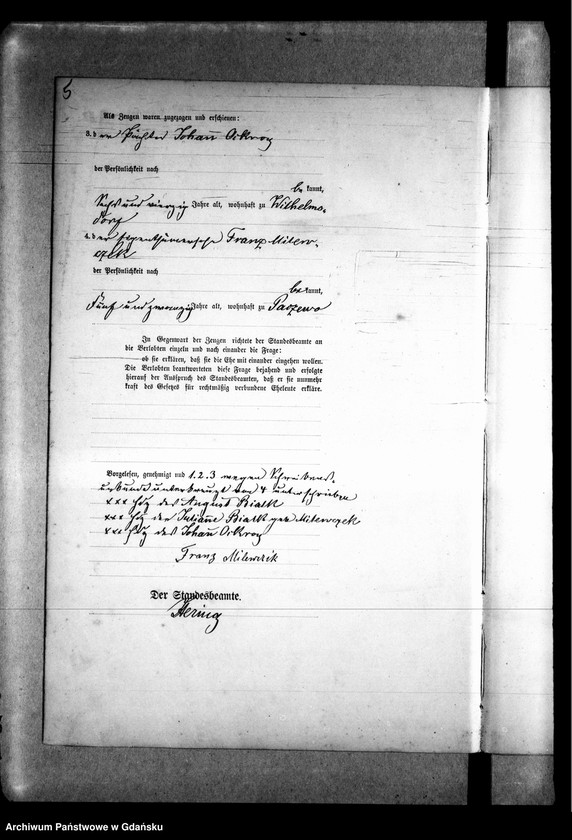 5
Als Zeugen waren zugezogen und erschienen:
3. der Pächter Johann
der Persönlichkeit nach
be kannt,
Sechs und vierzig Jahre alt, wohnhaft zu Wilhelms-
dorf
4. der Franz Milew-
czek
der Persönlichkeit nach
be kannt,
Fünf und zwanzig Jahre alt, wohnhaft zu
In Gegenwart der Zeugen richtete der Standesbeamte an
die Verlobten einzeln und nach einander die Frage:
ob sie erklären, daß sie die Ehe mit einander eingehen wollen.
Die Verlobten beantworteten diese Frage bejahend und erfolgte
hierauf der Ausspruch des Standesbeamten, daß er sie nunmehr
kraft des Gesetzes für rechtmäßig verbundene Eheleute erkläre.
Vorgelesen, genehmigt und 1. 2. 3 wegen Schreibens-
unkunde unterkreuzt von 4 unterschrieben
xxx Hdz des August Bialk
xxx Hdz der Bialk geb Milewczek
xxx Hdz des Johann
Franz Milewczik
Der Standesbeamte.
Hering
Archiwum Państwowe w Gdańsku